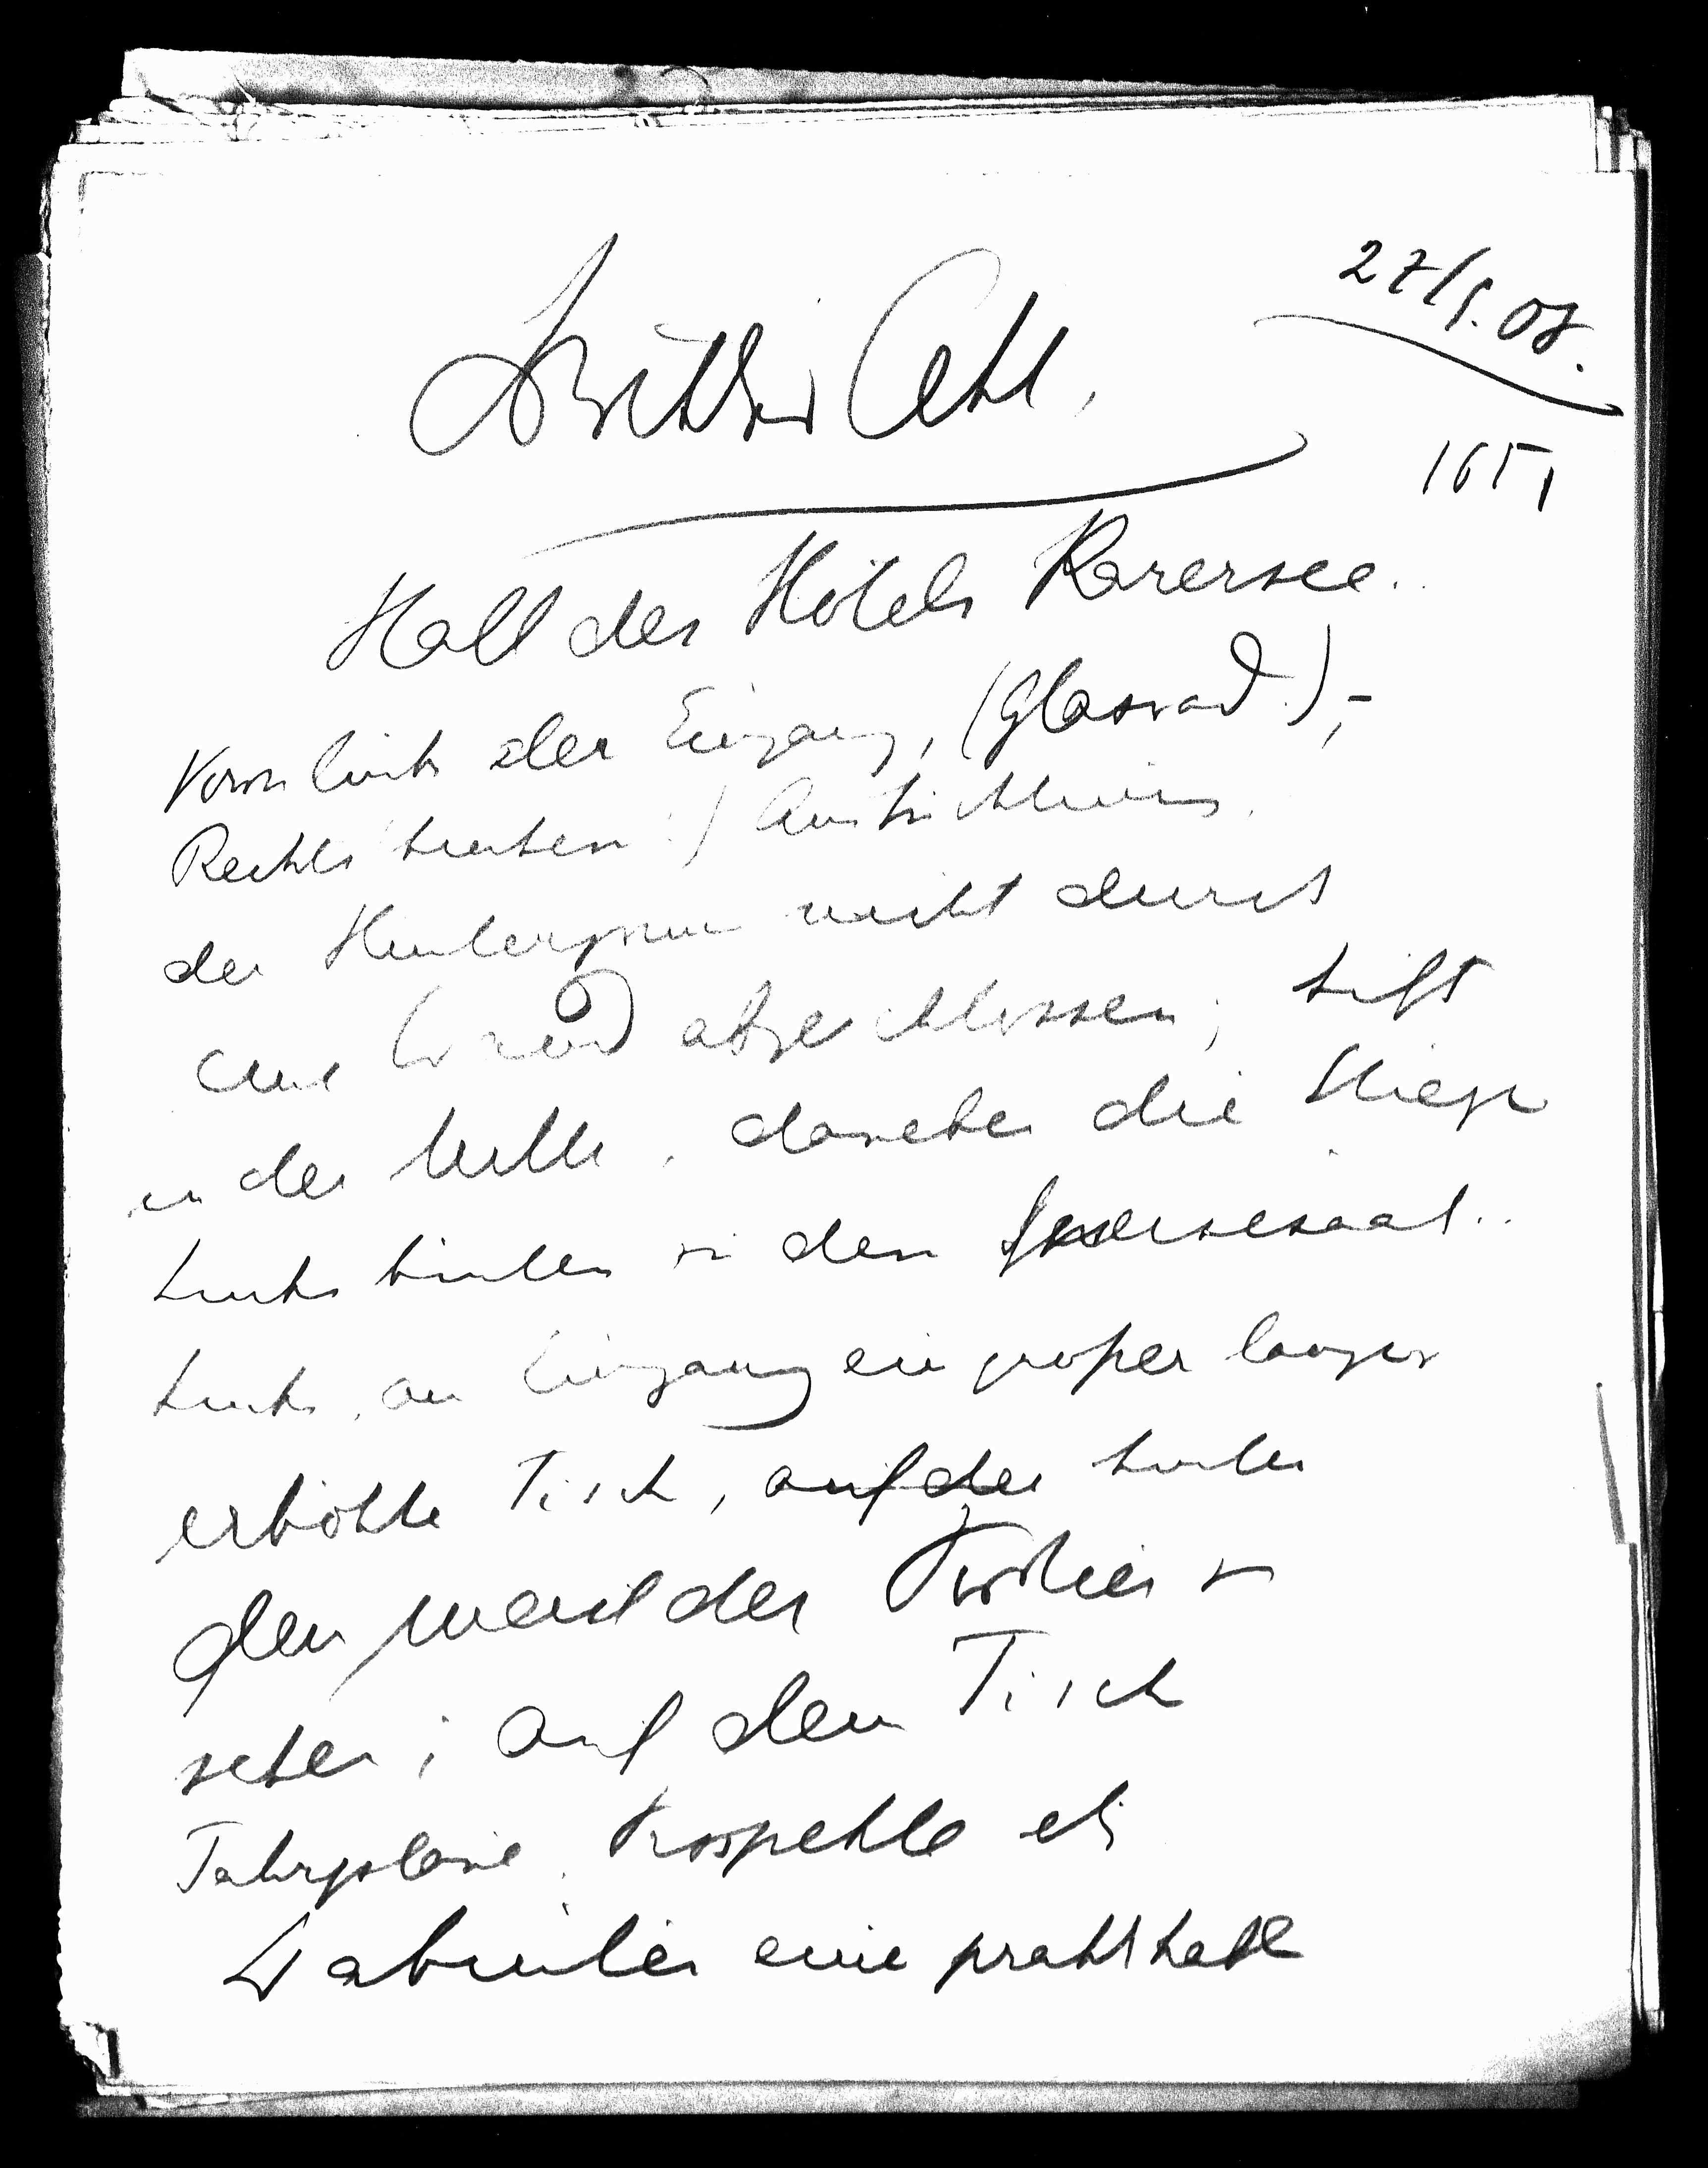 27/5. 08.
Dritter Akt.
165,
Hall des Hôtels Karersee.
Vorn links der Eingang, (Glaswand.),-
Rechts
der Hintergrund nicht durch
eine Wand abgeschlossen; Lift
in der Mitte, daneben die Stiege
Links hinten in den Speisesaal..
Links, am Eingang ein großer langer
erhöhter Tisch, auf der hinter
dem meist der Portier
 ; auf dem Tisch
Fahrpläne, Prospekte etc
Dahinter eine prahlhafte